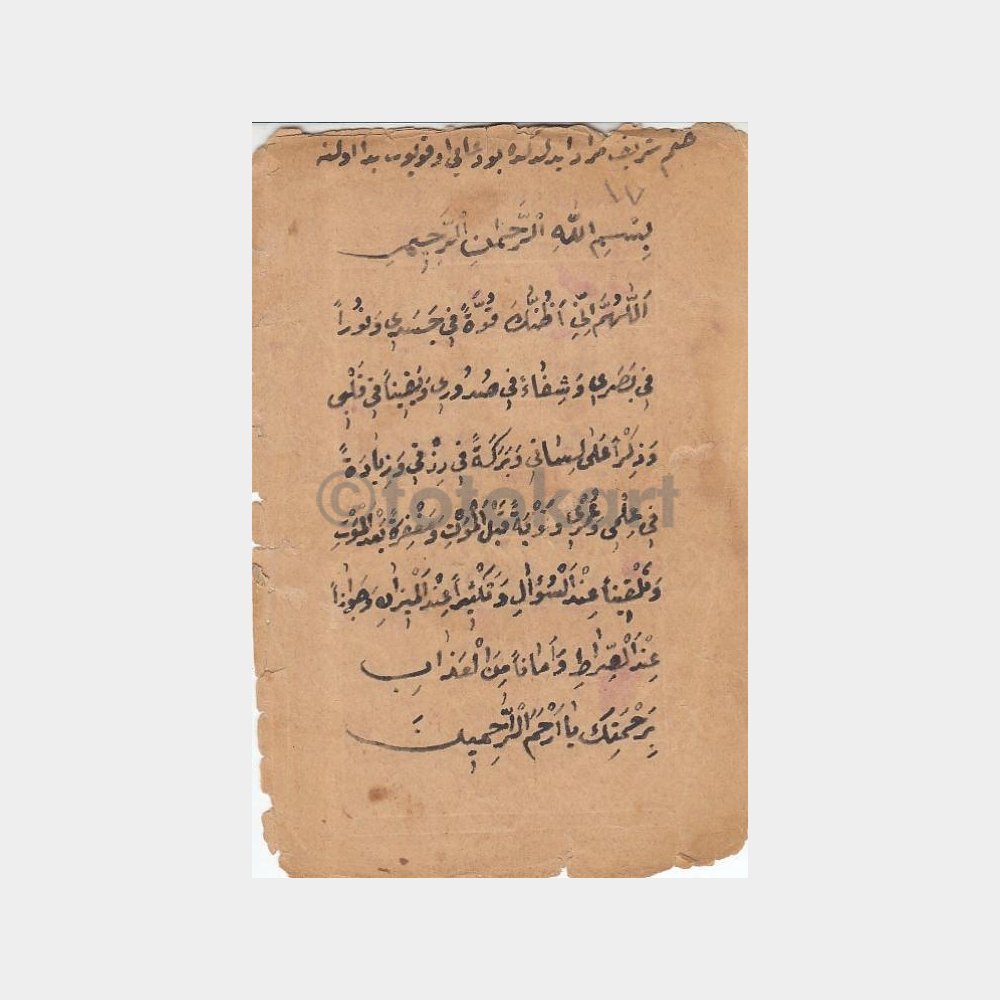 ختم شريف مراد ايدلدكده بو دعايى اوقويوب بدا اولنه
١٧
بِسْمِ اللّٰهِ الرَّحْمٰنِ الرَّحِيمِ
اَللّٰهُمَّ اِنِّي اَظُنُّكَ قُوَّةً فِي جَسَدِي وَنُوُراً
فِي بَصَرِي وَشِفَاءً فِي صُدُورِي وَيَقِيناً فِي قَلْبِي
وَذِكْراً عَلَى لِسَانِي وَبَرَكَةً فِي رِزْقِي وَزِيَادَةً
فِي عِلْمِي وَعُمْرِي وَتَوْبَةً قَبْلَ الْمَوْتِ وَمَغْفِرَةً بَعْدَ الْمَوْتِ
وَتَلْقِيناً عِنْدَ السُّؤَالِ وَتَكْثِيراً عِنْدَ الْمِيزَانِ وَجَوَازاً
عِنْدَ الْصِّرَاطِ وَاَمَاناً مِنَ الْعَذَابِ
بِرَحْمَتِكَ يَا اَرْحَمَ الْرَّاحِمِينَ
©fotokart